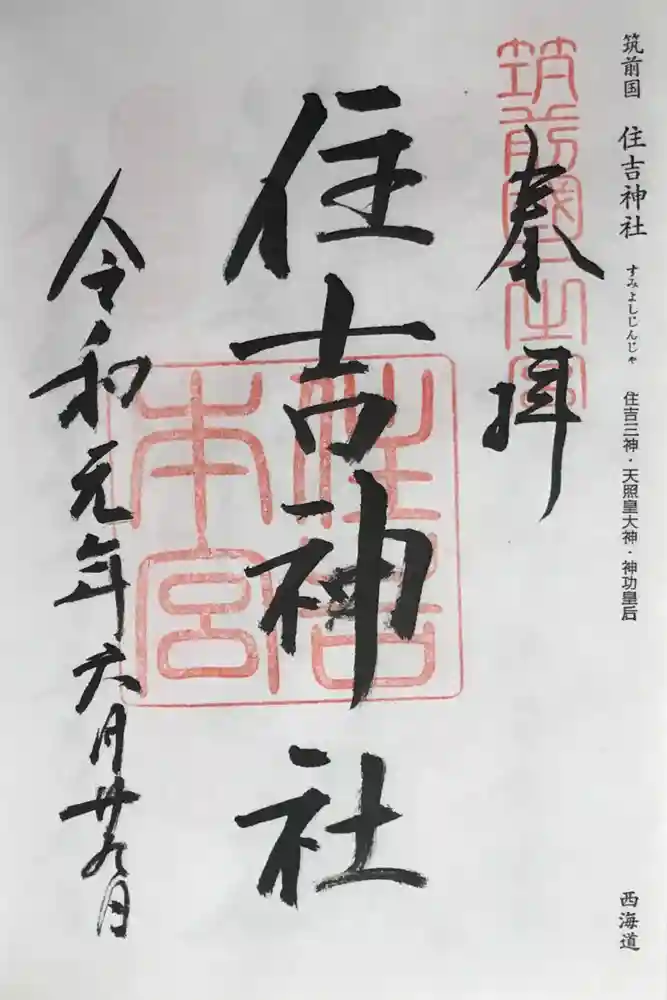 筑前国 住吉神社 すみよしじんじゃ 住吉三神・天照皇大神・神功皇后
西海道
奉拝
筑前國一之宮
住吉神社
住吉
本宮
令和元年六月廿九日